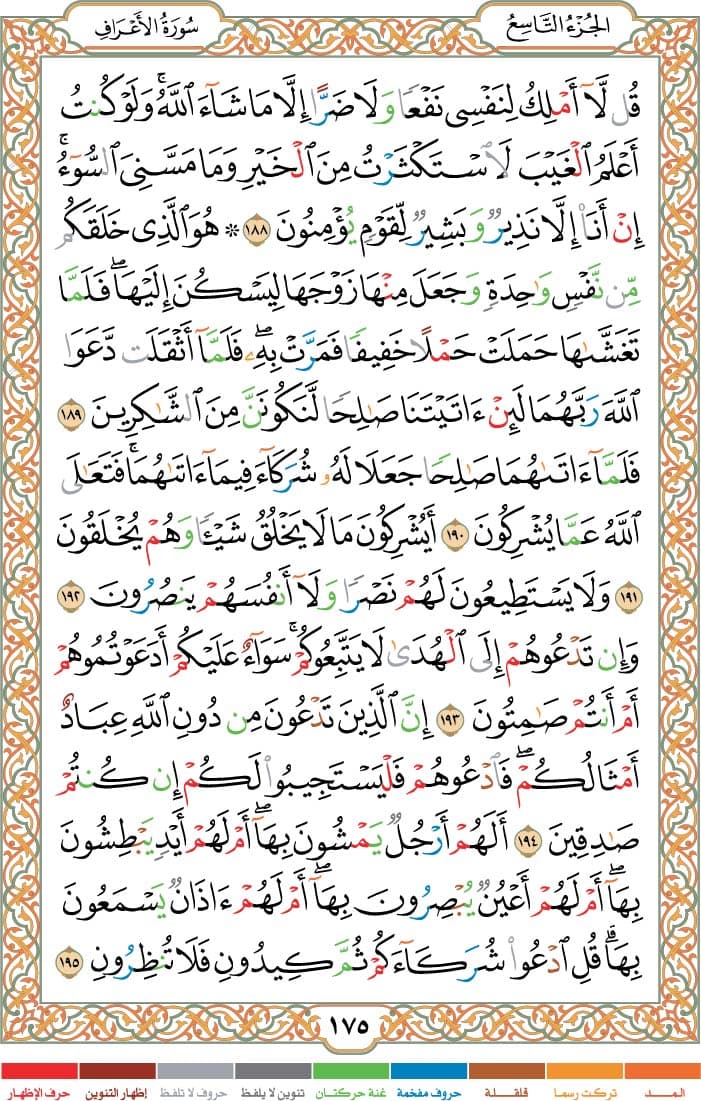 الجُزْءُ التَّاسِعُ
سُورَةُ الأَعْرَافِ
قُل لَّآ أَمْلِكُ لِنَفْسِى نَفْعًا وَلَا ضَرًّا إِلَّا مَا شَآءَ ٱللَّهُ ۚ وَلَوْ كُنتُ
أَعْلَمُ ٱلْغَيْبَ لَٱسْتَكْثَرْتُ مِنَ ٱلْخَيْرِ وَمَا مَسَّنِىَ ٱلسُّوٓءُ ۚ
إِنْ أَنَا۠ إِلَّا نَذِيرٌ وَبَشِيرٌ لِّقَوْمٍ يُؤْمِنُونَ ١٨٨ ۞ هُوَ ٱلَّذِى خَلَقَكُم
مِّن نَّفْسٍ وَٰحِدَةٍ وَجَعَلَ مِنْهَا زَوْجَهَا لِيَسْكُنَ إِلَيْهَا ۖ فَلَمَّا
تَغَشَّىٰهَا حَمَلَتْ حَمْلًا خَفِيفًا فَمَرَّتْ بِهِۦ ۖ فَلَمَّآ أَثْقَلَت دَّعَوَا
ٱللَّهَ رَبَّهُمَا لَئِنْ ءَاتَيْتَنَا صَٰلِحًا لَّنَكُونَنَّ مِنَ ٱلشَّٰكِرِينَ ١٨٩
فَلَمَّآ ءَاتَىٰهُمَا صَٰلِحًا جَعَلَا لَهُۥ شُرَكَآءَ فِيمَآ ءَاتَىٰهُمَا ۚ فَتَعَٰلَى
ٱللَّهُ عَمَّا يُشْرِكُونَ ١٩٠ أَيُشْرِكُونَ مَا لَا يَخْلُقُ شَيْـًٔا وَهُمْ يُخْلَقُونَ
١٩١ وَلَا يَسْتَطِيعُونَ لَهُمْ نَصْرًا وَلَآ أَنفُسَهُمْ يَنصُرُونَ ١٩٢
وَإِن تَدْعُوهُمْ إِلَى ٱلْهُدَىٰ لَا يَتَّبِعُوكُمْ ۚ سَوَآءٌ عَلَيْكُمْ أَدَعَوْتُمُوهُمْ
أَمْ أَنتُمْ صَٰمِتُونَ ١٩٣ إِنَّ ٱلَّذِينَ تَدْعُونَ مِن دُونِ ٱللَّهِ عِبَادٌ
أَمْثَالُكُمْ ۖ فَٱدْعُوهُمْ فَلْيَسْتَجِيبُوا۟ لَكُمْ إِن كُنتُمْ
صَٰدِقِينَ ١٩٤ أَلَهُمْ أَرْجُلٌ يَمْشُونَ بِهَآ ۖ أَمْ لَهُمْ أَيْدٍ يَبْطِشُونَ
بِهَآ ۖ أَمْ لَهُمْ أَعْيُنٌ يُبْصِرُونَ بِهَآ ۖ أَمْ لَهُمْ ءَاذَانٌ يَسْمَعُونَ
بِهَا ۗ قُلِ ٱدْعُوا۟ شُرَكَآءَكُمْ ثُمَّ كِيدُونِ فَلَا تُنظِرُونِ ١٩٥
١٧٥
المــد تركت رسما قلقـلة حروف مفخمة غنة حركتان تنوين لا يلفظ حروف لا تلفظ إظهار التنوين حرف الإظهار